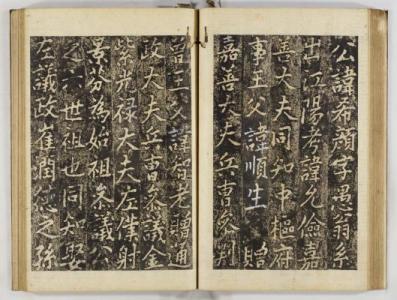 公諱希顔字愚翁系
出江陽考諱允儉嘉
善大夫同知中樞府
事王父諱順生 贈
嘉善大夫兵曹叅判
曾王父諱智老贈通
政大夫兵曹叅議金
紫光禄大夫左僕射
景芬為始祖叅議公
之六世祖也同知娶
左議政崔潤德之孫